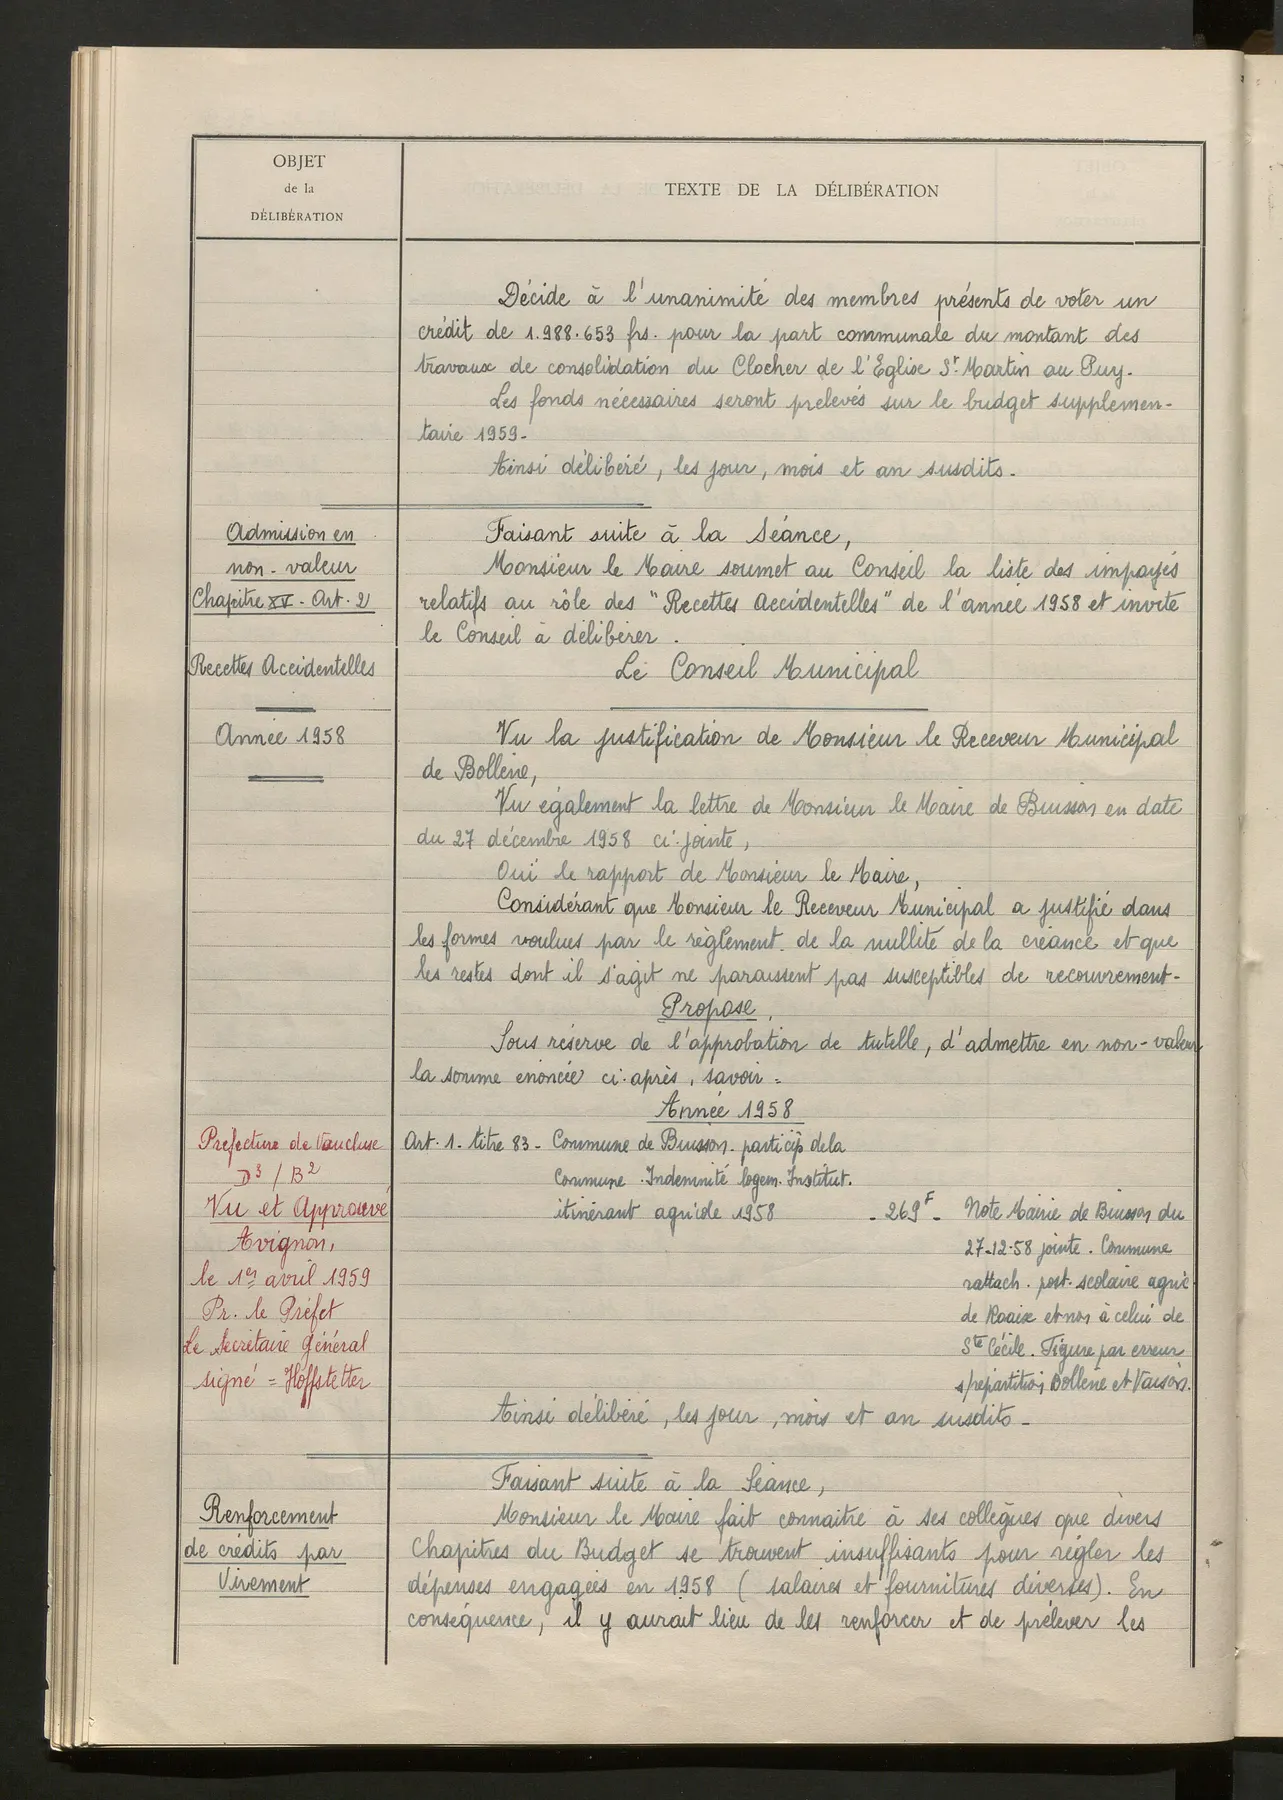 OBJET
de la
DÉLIBÉRATION
TEXTE DE LA DÉLIBÉRATION
Décide à l'unanimité des membres présents de voter un
crédit de 1.988.653 frs. pour la part communale du montant des
travaux de consolidation du Clocher de l'Eglise St. Martin au Puy.
Les fonds nécessaires seront prelevés sur le budget supplémen-
taire 1959-
Ainsi délibéré, les jour, mois et an susdits.
Admission en
non-valeur
Chapitre XV - Art. 2
Recettes Accidentelles
Année 1958
Faisant suite à la Séance,
Monsieur le Maire soumet au Conseil la liste des impayés
relatifs au rôle des "Recettes Accidentelles" de l'année 1958 et invite
le Conseil à délibérer.
Le Conseil Municipal
Vu la justification de Monsieur le Receveur Municipal
de Bollène,
Vu également la lettre de Monsieur le Maire de Buisson en date
du 27 décembre 1958 ci-jointe,
Oui le rapport de Monsieur le Maire,
Considérant que Monsieur le Receveur Municipal a justifié dans
les formes voulues par le règlement de la nullité de la créance et que
les restes dont il s'agit ne paraissent pas susceptibles de recouvrement-
Propose,
Sous réserve de l'approbation de tutelle, d'admettre en non-valeur
la somme énoncée ci-après, savoir =
Année 1958
Art. 1. titre 83 - Commune de Buisson - particip de la
Commune. Indemnité logem. Institut.
itinérant agricole 1958 - 269F -
Note Mairie de Buisson du
27-12-58 jointe. Commune
rattach. post-scolaire agric
de Roaix et non à celui de
Ste Cécile. Figure par erreur
s/répartition Bollène et Vaison.
Préfecture de Vaucluse
D3 / B2
Vu et Approuvé
Avignon,
le 1er avril 1959
Pr. le Préfet
Le Secrétaire Général
signé = Hoffstetter
Ainsi délibéré, les jour, mois et an susdits -
Renforcement
de crédits par
Virement
Faisant suite à la Séance,
Monsieur le Maire fait connaitre à ses collègues que divers
Chapitres du Budget se trouvent insuffisants pour régler les
dépenses engagées en 1958 (salaires et fournitures diverses). En
conséquence, il y aurait lieu de les renforcer et de prélever les